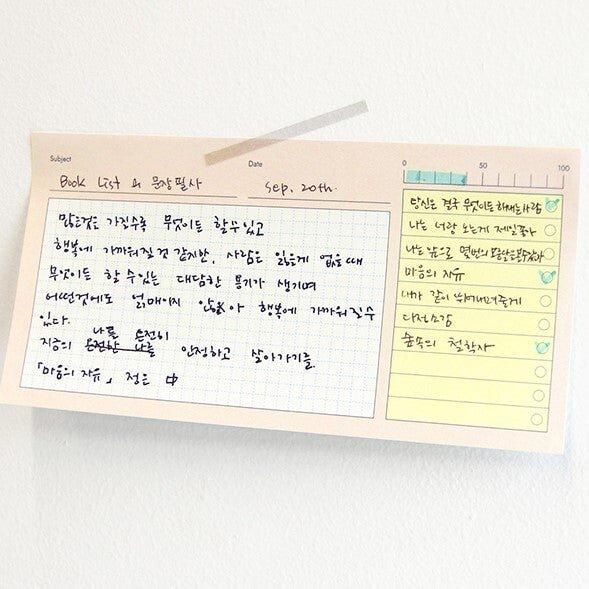 Subject
Book List 과 문장필사
Date
Sep. 20th.
0 50 100
많은것을 가질수록 무엇이든 할수있고
행복에 가까워질 것 같지만, 사람은 잃을게 없을때
무엇이든 할 수 있는 대담한 용기가 생기며
어떤것에도 얽매이지 않아 행복에 가까워질수
있다. 나를 온전히
지금의 온전한 나를 인정하고 살아가기를.
「마음의 자유」 정은 中
당신은 결국 무엇이든 해내는 사람
나는 너랑 노는게 제일좋아
나는 앞으로 몇번의 보름달을볼수있을까
마음의 자유
내가 같이 뛰어내려줄게
다정소감
숲속의 철학자